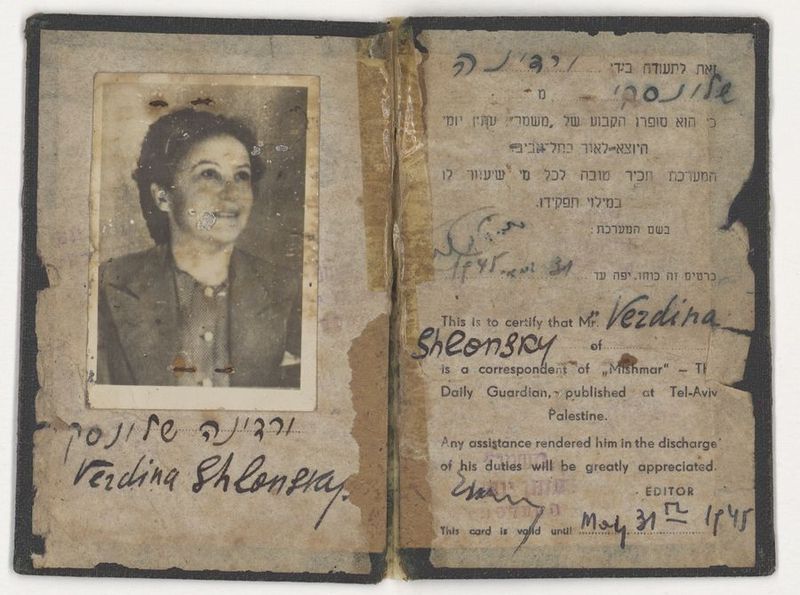 ורדינה שלונסקי
Verdina Shlonsky
זאת לתעודה בידי ורדינה
שלונסקי מ
כי הוא סופרו הקבוע של „משמר", עתון יומי
היוצא-לאור בתל-אביב
המערכת תכיר טובה לכל מי שיעזור לו
במילוי תפקידו.
בשם המערכת:
כרטיס זה כוחו יפה עד 31 במאי 1945
This is to certify that Mr. Verdina
Shlonsky of
is a correspondent of „Mishmar" – Th
Daily Guardian, published at Tel-Aviv
Palestine.
Any assistance rendered him in the discharge
of his duties will be greatly appreciated.
EDITOR
This card is valid until May 31st 1945